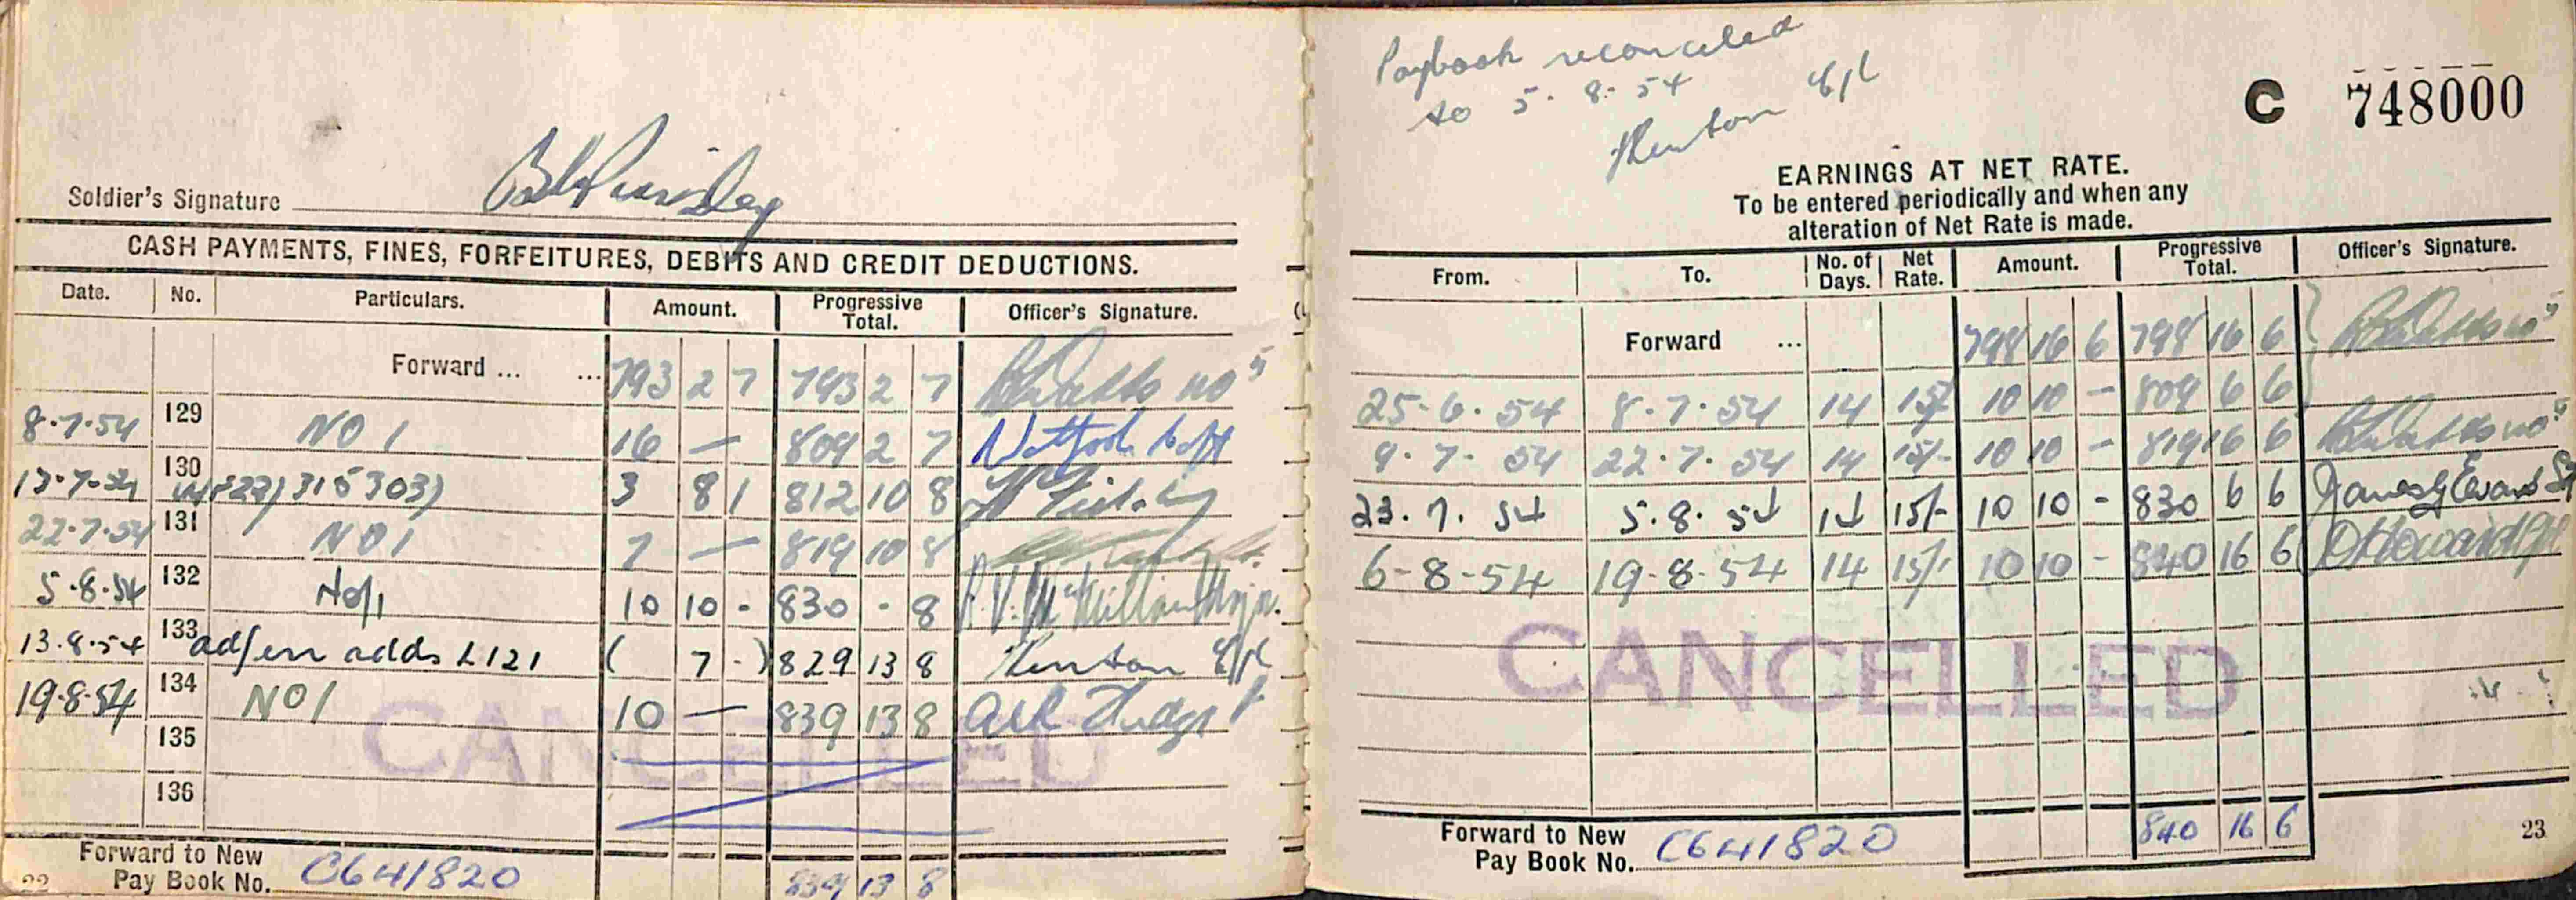 Soldier's Signature
CASH PAYMENTS, FINES, FORFEITURES, DEBITS AND CREDIT DEDUCTIONS.
Date. No. Particulars. Amount. Progressive Total. Officer's Signature.
Forward ... ... 793 2 7 793 2 7
8.7.54 129 NO 1 16 — 809 2 7
13.7.54 130 315303) 3 8 1 812 10 8
22.7.54 131 NO 1 7 — 819 10 8
5.8.54 132 No/1 10 10 - 830 - 8
13.8.54 133 adds L121 ( 7 - ) 829 13 8
19.8.54 134 NO 1 10 — 839 13 8
135
136
CANCELLED
Forward to New
Pay Book No. C641820 839 13 8
22
Paybook reconciled
to 5.8.54
C 748000
EARNINGS AT NET RATE.
To be entered periodically and when any
alteration of Net Rate is made.
From. To. No. of Days. Net Rate. Amount. Progressive Total. Officer's Signature.
Forward ... 798 16 6 798 16 6
25.6.54 8.7.54 14 15/- 10 10 - 809 6 6
9.7.54 22.7.54 14 15/- 10 10 - 819 16 6
23.7.54 5.8.54 14 15/- 10 10 - 830 6 6 James G Evans
6-8-54 19-8-54 14 15/- 10 10 - 840 16 6 Howard
CANCELLED
Forward to New
Pay Book No. C641820 840 16 6
23